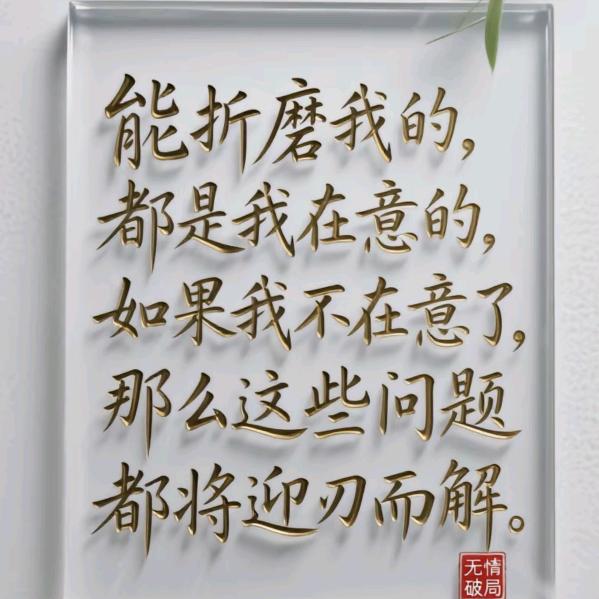 能折磨我的，
都是我在意的，
如果我不在意了，
那么这些问题
都将迎刃而解。
无情
破局